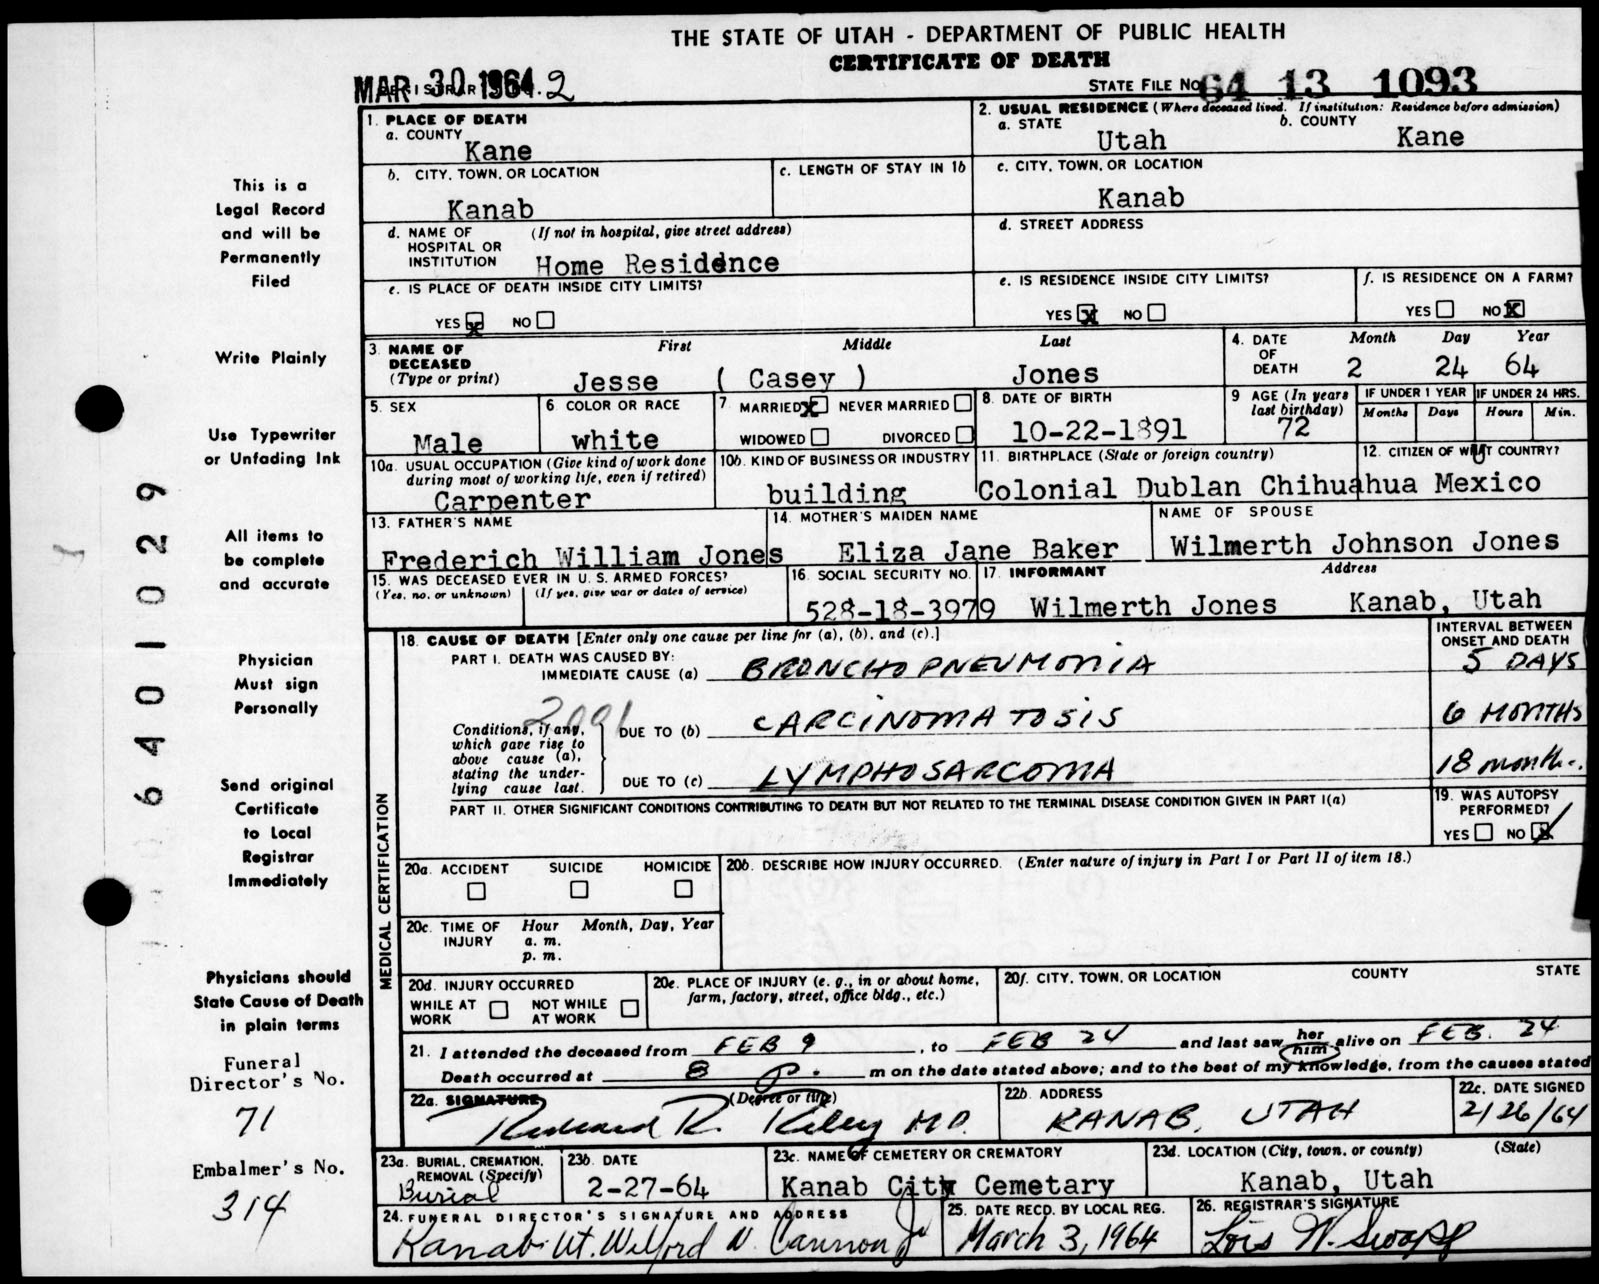 THE STATE OF UTAH - DEPARTMENT OF PUBLIC HEALTH
CERTIFICATE OF DEATH
MAR 30 1964 2
STATE FILE NO. 64 13 1093
1. PLACE OF DEATH
a. COUNTY
Kane
2. USUAL RESIDENCE (Where deceased lived. If institution: Residence before admission)
a. STATE
Utah
b. COUNTY
Kane
b. CITY, TOWN, OR LOCATION
Kanab
c. LENGTH OF STAY IN 1b
c. CITY, TOWN, OR LOCATION
Kanab
d. NAME OF HOSPITAL OR INSTITUTION
(If not in hospital, give street address)
Home Residence
d. STREET ADDRESS
e. IS PLACE OF DEATH INSIDE CITY LIMITS?
YES X NO
e. IS RESIDENCE INSIDE CITY LIMITS?
YES X NO
f. IS RESIDENCE ON A FARM?
YES NO X
3. NAME OF DECEASED (Type or print)
First Middle Last
Jesse ( Casey ) Jones
4. DATE OF DEATH
Month Day Year
2 24 64
5. SEX
Male
6. COLOR OR RACE
white
7. MARRIED X NEVER MARRIED
WIDOWED DIVORCED
8. DATE OF BIRTH
10-22-1891
9 AGE (In years last birthday)
72
IF UNDER 1 YEAR
Months Days
IF UNDER 24 HRS.
Hours Min.
10a. USUAL OCCUPATION (Give kind of work done during most of working life, even if retired)
Carpenter
10b. KIND OF BUSINESS OR INDUSTRY
building
11. BIRTHPLACE (State or foreign country)
Colonial Dublan Chihuahua Mexico
12. CITIZEN OF WHAT COUNTRY?
13. FATHER'S NAME
Frederich William Jones
14. MOTHER'S MAIDEN NAME
Eliza Jane Baker
NAME OF SPOUSE
Wilmerth Johnson Jones
15. WAS DECEASED EVER IN U. S. ARMED FORCES?
(Yes, no, or unknown) (If yes, give war or dates of service)
16. SOCIAL SECURITY NO.
528-18-3979
17. INFORMANT Address
Wilmerth Jones Kanab, Utah
MEDICAL CERTIFICATION
18. CAUSE OF DEATH [Enter only one cause per line for (a), (b), and (c).]
INTERVAL BETWEEN ONSET AND DEATH
PART I. DEATH WAS CAUSED BY:
IMMEDIATE CAUSE (a) BRONCHOPNEUMONIA
5 DAYS
2001
Conditions, if any, which gave rise to above cause (a), stating the underlying cause last.
DUE TO (b) CARCINOMATOSIS
6 MONTHS
DUE TO (c) LYMPHOSARCOMA
18 month
PART II. OTHER SIGNIFICANT CONDITIONS CONTRIBUTING TO DEATH BUT NOT RELATED TO THE TERMINAL DISEASE CONDITION GIVEN IN PART I(a)
19. WAS AUTOPSY PERFORMED?
YES NO X
20a. ACCIDENT SUICIDE HOMICIDE
20b. DESCRIBE HOW INJURY OCCURRED. (Enter nature of injury in Part I or Part II of item 18.)
20c. TIME OF INJURY
Hour Month, Day, Year
a. m.
p. m.
20d. INJURY OCCURRED
WHILE AT WORK NOT WHILE AT WORK
20e. PLACE OF INJURY (e. g., in or about home, farm, factory, street, office bldg., etc.)
20f. CITY, TOWN, OR LOCATION COUNTY STATE
21. I attended the deceased from FEB 9, to FEB 24 and last saw her him alive on FEB. 24
Death occurred at 8 P. m on the date stated above; and to the best of my knowledge, from the causes stated
22a. SIGNATURE (Degree or title)
Richard R. Riley MD.
22b. ADDRESS
KANAB, UTAH
22c. DATE SIGNED
2/26/64
23a. BURIAL, CREMATION, REMOVAL (Specify)
Burial
23b. DATE
2-27-64
23c. NAME OF CEMETERY OR CREMATORY
Kanab City Cemetary
23d. LOCATION (City, town, or county) (State)
Kanab, Utah
24. FUNERAL DIRECTOR'S SIGNATURE AND ADDRESS
Kanab Ut. Wilford N. Cannon Jr
25. DATE RECD. BY LOCAL REG.
March 3, 1964
26. REGISTRAR'S SIGNATURE
Lois W. Swapp
This is a
Legal Record
and will be
Permanently
Filed
Write Plainly
Use Typewriter
or Unfading Ink
All items to
be complete
and accurate
Physician
Must sign
Personally
Send original
Certificate
to Local
Registrar
Immediately
Physicians should
State Cause of Death
in plain terms
Funeral
Director's No.
71
Embalmer's No.
314
6401029